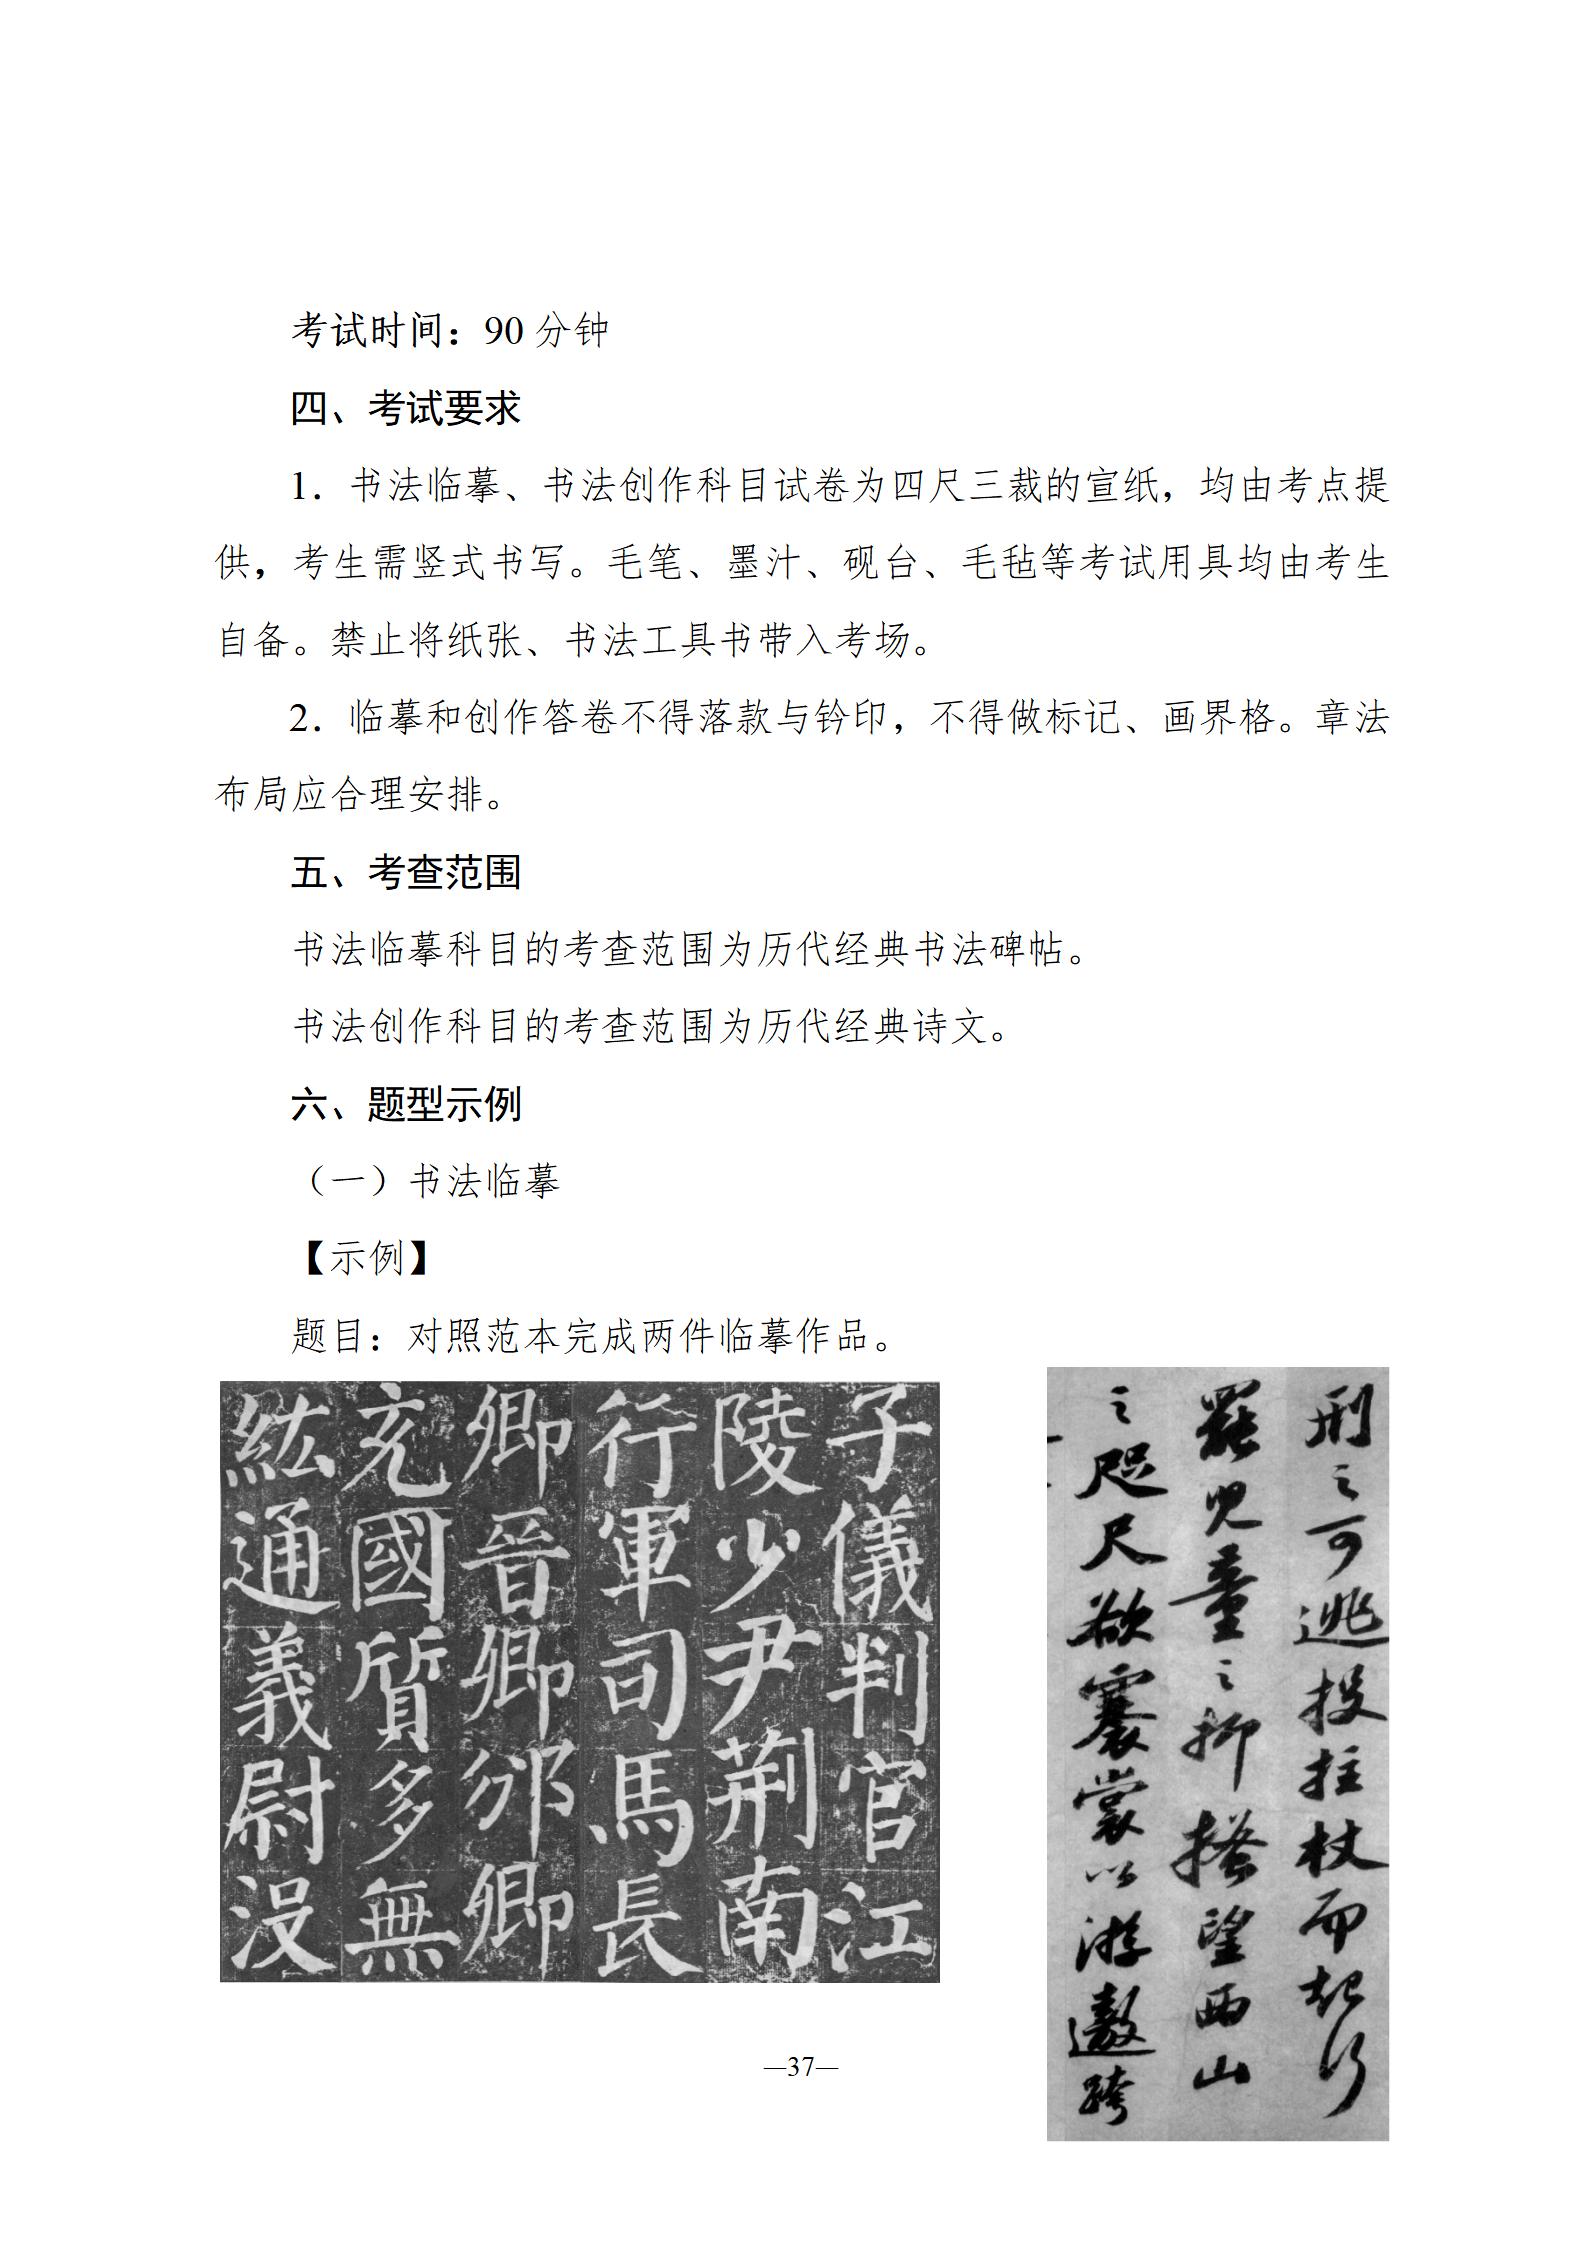 考试时间：90 分钟
四、考试要求
1．书法临摹、书法创作科目试卷为四尺三裁的宣纸，均由考点提
供，考生需竖式书写。毛笔、墨汁、砚台、毛毡等考试用具均由考生
自备。禁止将纸张、书法工具书带入考场。
2．临摹和创作答卷不得落款与钤印，不得做标记、画界格。章法
布局应合理安排。
五、考查范围
书法临摹科目的考查范围为历代经典书法碑帖。
书法创作科目的考查范围为历代经典诗文。
六、题型示例
（一）书法临摹
【示例】
题目：对照范本完成两件临摹作品。
子儀判官江
陵少尹荆南
行軍司馬長
卿晉卿邠卿
充國質多無
紘通義尉没
刑之可逃投拄杖而起行
罷兒童之抑搔望西山
之咫尺欲褰裳以游遨跨
—37—